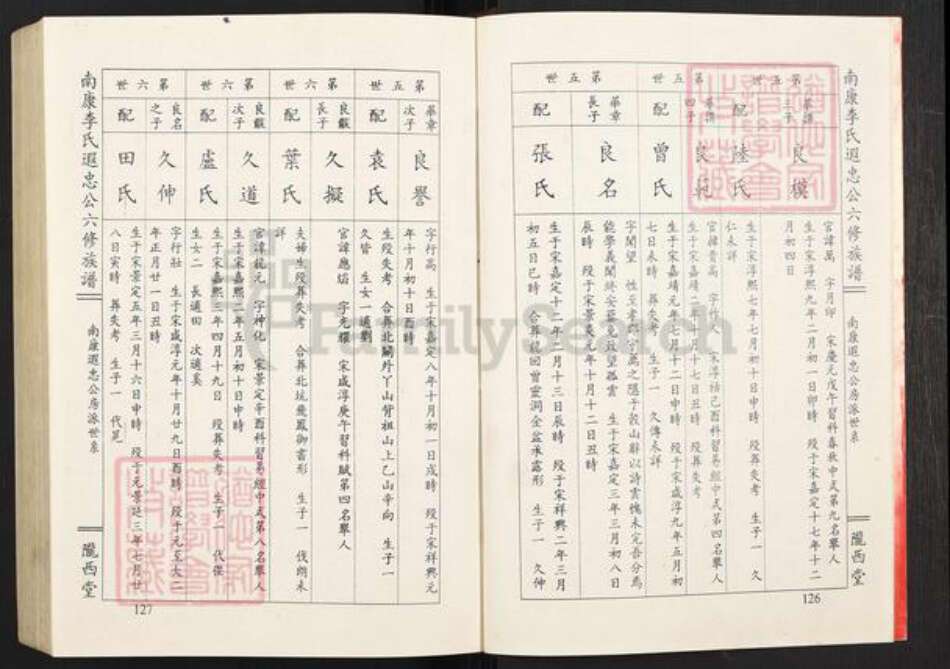 南康李氏遐忠公六修族譜
南康遐忠公房派世系
隴西堂
126
第五世
良模
配
陸氏
官諱萬 字月印 宋慶元戊午習科春秋中式第九名舉人
生于宋淳熙九年二月初一日卯時 歿于宋嘉定十七年十二
月初四日
生于宋淳熙七年七月初十日申時 歿葬失考 生子一 久
仁未詳
第五世
四子
良範
配
曾氏
生于宋嘉靖元年七月十二日申時 歿于宋咸淳九年五月初
七日未時 葬失考 生子一 久傳未詳
第五世
華章
長子
良名
配
張氏
字聞望
生于宋嘉定三年三月初八日
辰時 歿于宋景炎元年十月十二日丑時
生于宋嘉定十二年三月十三日辰時 歿于宋祥興二年三月
初五日己時 合葬 生子一 久伸
第五世
華章
次子
良譽
配
袁氏
字行高 生于宋嘉定八年十月初一日戌時 歿于宋祥興元
年十月初十日酉時
生歿失考 合葬北關外丫山背祖山上乙山辛向 生子一
久皆 生女一 適劉
第六世
良戩
長子
久擬
配
葉氏
官諱應焰 字光耀 宋咸淳庚午習科賦第四名舉人
夫婦生歿葬失考 合葬北坑飛鳳御書形 生子一 伐朗未
詳
第六世
良戩
次子
久道
配
盧氏
官諱毓元 字神化 宋景定辛酉科習易經中式第八名舉人
生于宋嘉熙二年五月初十日申時
生于宋嘉熙三年四月十九日 歿葬失考 生子一 代傑
生女二 長適田 次適奚
第六世
良名
之子
久伸
配
田氏
字行壯 生于宋咸淳元年十月廿九日酉時 歿于元至大二
年正月廿一日丑時
生于宋景定五年三月十六日申時 歿于元景延三年七月廿
八日寅時 葬失考 生子一 代昆
南康李氏遐忠公六修族譜
南康遐忠公房派世系
隴西堂
127
FamilySearch